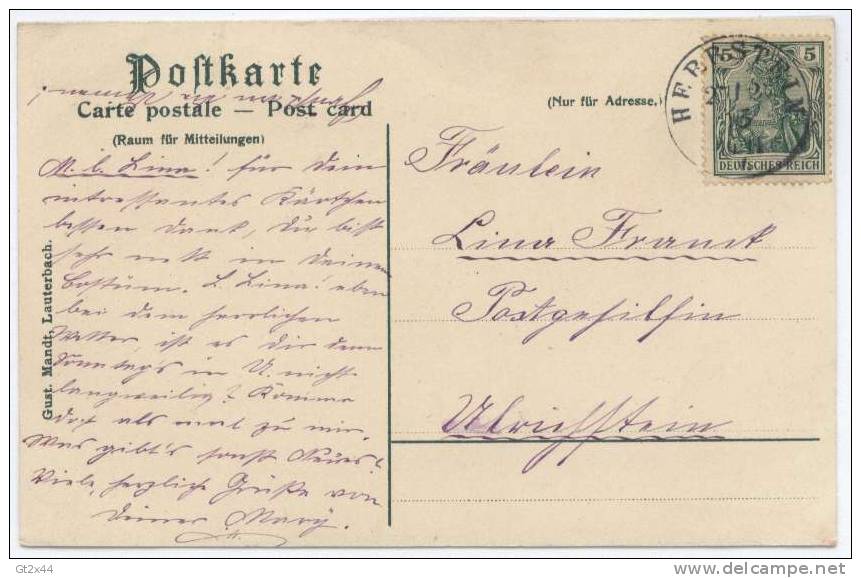 Postkarte
Carte postale — Post card
(Nur für Adresse.)
(Raum für Mitteilungen)
HERBSTEIN
5 5
DEUTSCHES REICH
M. l. Lina! für Dein
intressantes Kärtchen
besten Dank, Du bist
sehr nett in Deinem
Costüm. L. Lina! eben
bei dem herrlichen
Wetter, ist es Dir denn
Sonntags in U. nicht
langweilig? Komme
doch als mal zu mir.
Was gibt's sonst Neues?
Viele, herzliche Grüße von
Deiner Mary.
Fräulein
Lina Franck
Postgehilfin
Ulrichstein
Gust. Mandt, Lauterbach.
Gt2x44
delcampe.net